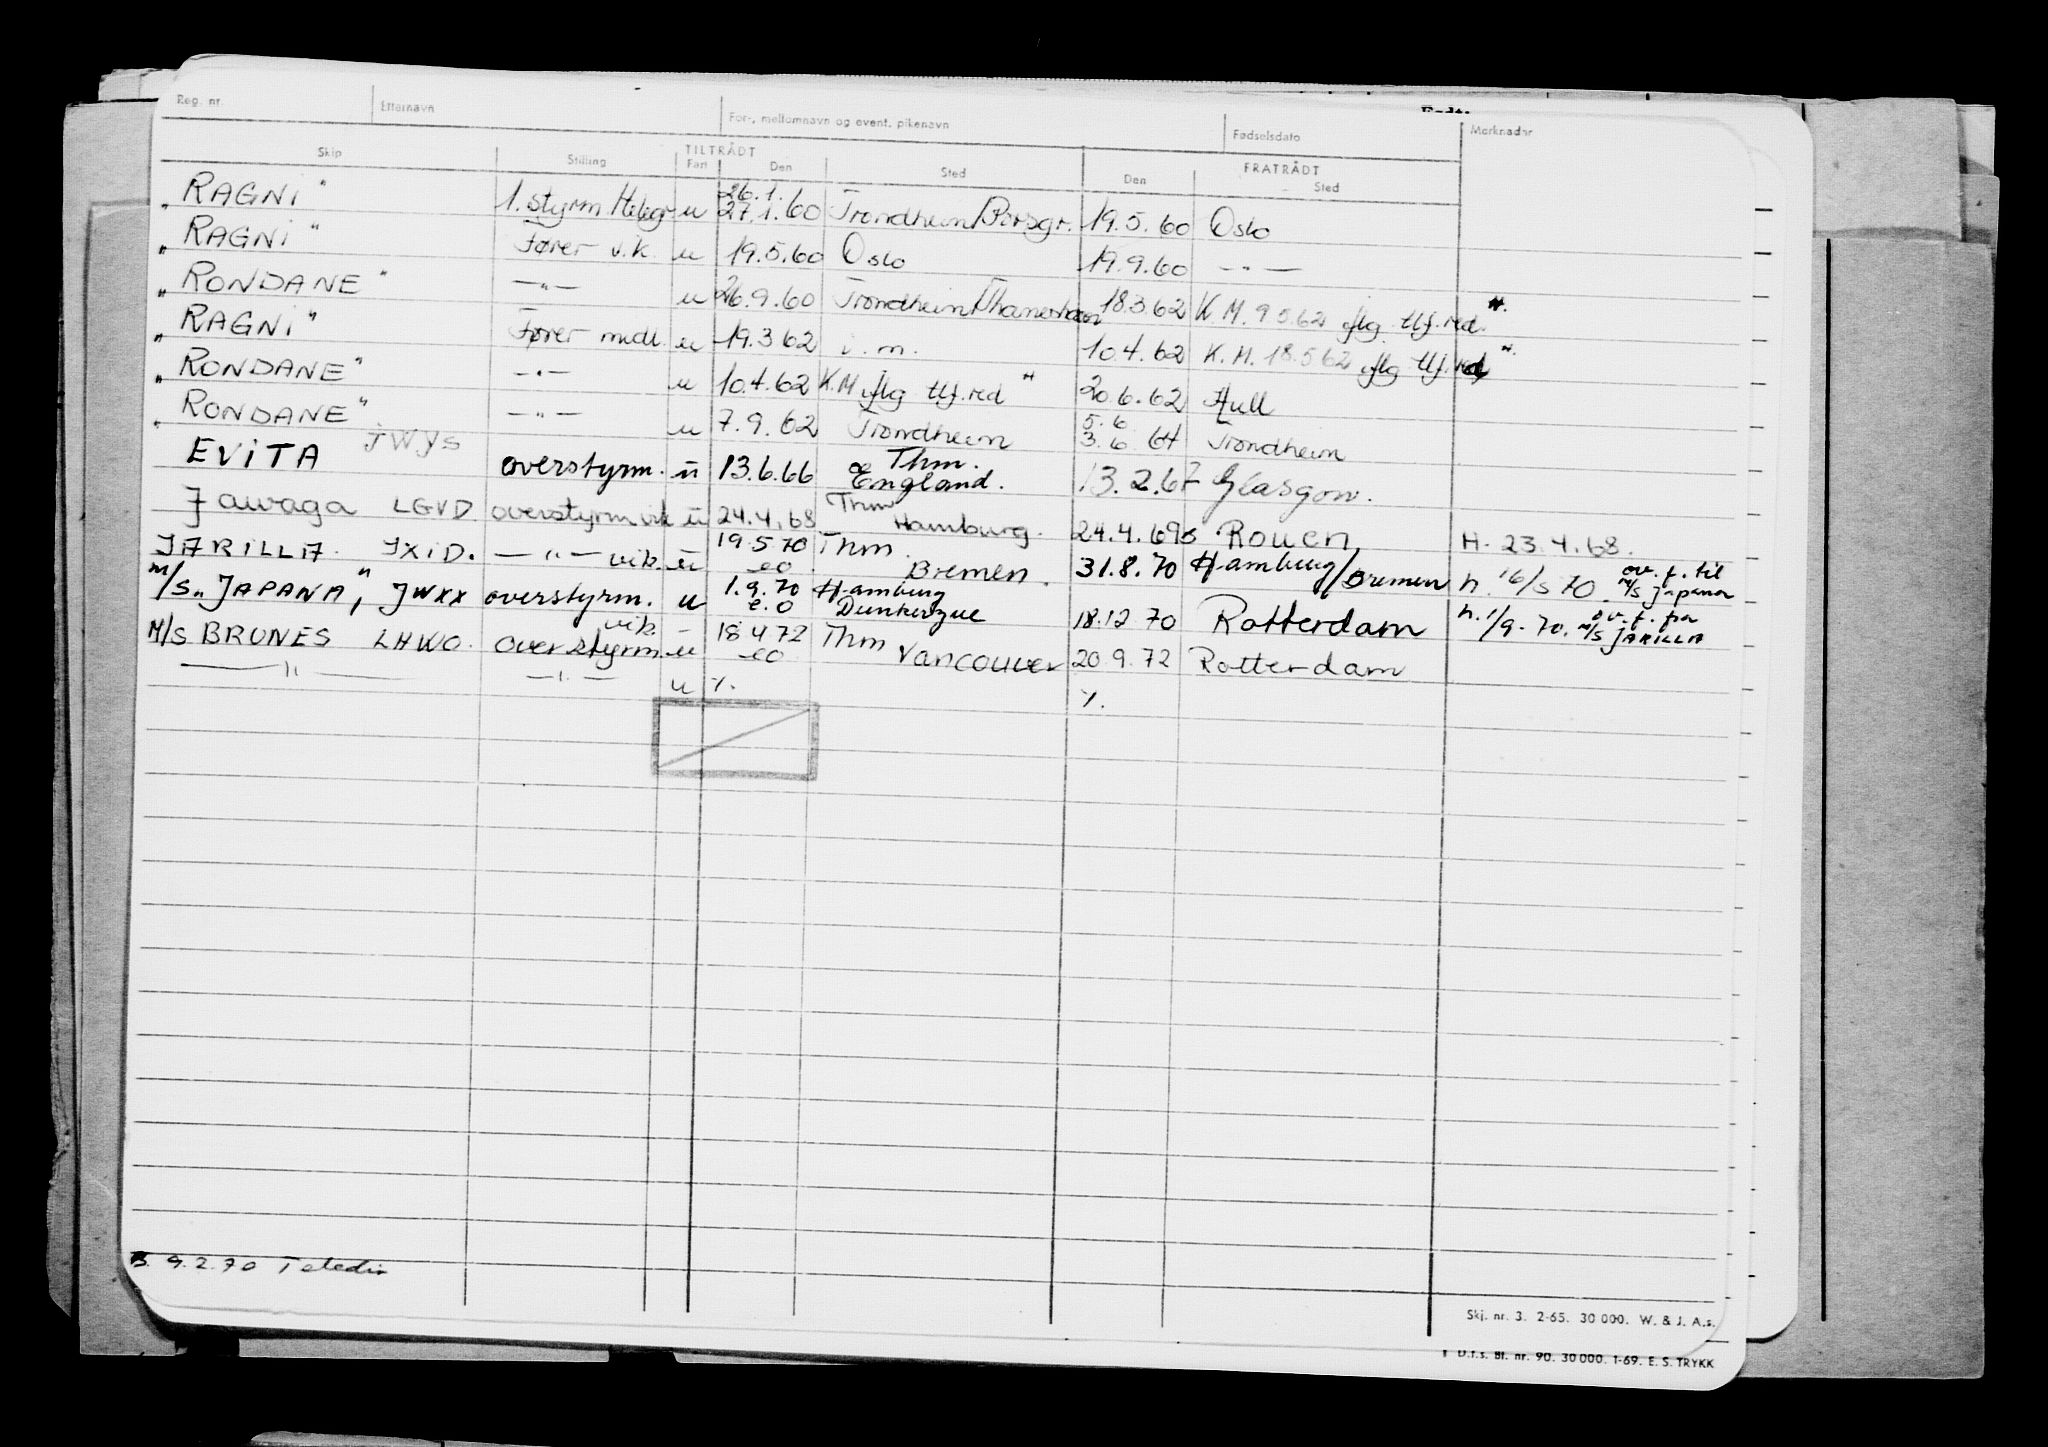 Reg. nr. Etternavn For-, mellomnavn og event. pikenavn Fødselsdato Merknader
TILTRÅDT FRATRÅDT
Skip Stilling Fart Den Sted Den Sted
26.1.
„RAGNi" 1. styrm u 27.1.60 Trondheim/Porsgr. 19.5.60 Oslo
„RAGNi" Fører vik. u 19.5.60 Oslo 19.9.60 —"—
„RONDANE" —"— u 26.9.60 Trondheim 18.3.62 K.M. 9.5.62 iflg tlf. red."
„RAGNi" Fører midl. u 19.3.62 i.m. 10.4.62 K.M. 18.5.62 iflg tlf. red."
„RONDANE" —"— u 10.4.62 K.M iflg tlf. red" 20.6.62 Hull
5.6
„RONDANE" —"— u 7.9.62 Trondheim 3.6.64 Trondheim
EViTA JWYS overstyrm. u 13.6.66 Thm. England. 13.2.67 Glasgow.
Jawaga LGVD. overstyrm vik u 24.4.68 Thm Hamburg. 24.4.69 Rouen H. 23.4.68.
JARILLA. JXiD. —"— vik. u 19.5.70 eo Thm. Bremen. 31.8.70 Hamburg/Bremen h. 16/5 70. ov. f. til M/S Japana
M/S „JAPANA", JWXX overstyrm. u 1.9.70 e.o Hamburg Dunkerque 18.12.70 Rotterdam h. 1/9-70. ov. f. fra M/S JARILLA
M/S BRUNES LHWO. overstyrm. vik u 18.4.72 eo Thm Vancouver 20.9.72 Rotterdam
—"— —"— u %. %.
B. 9.2.70 Teledir
Skj. nr. 3. 2-65. 30 000. W. & J. A.s.
D.f.s. Bl. nr. 90. 30 000. 1-69. E. S. TRYKK